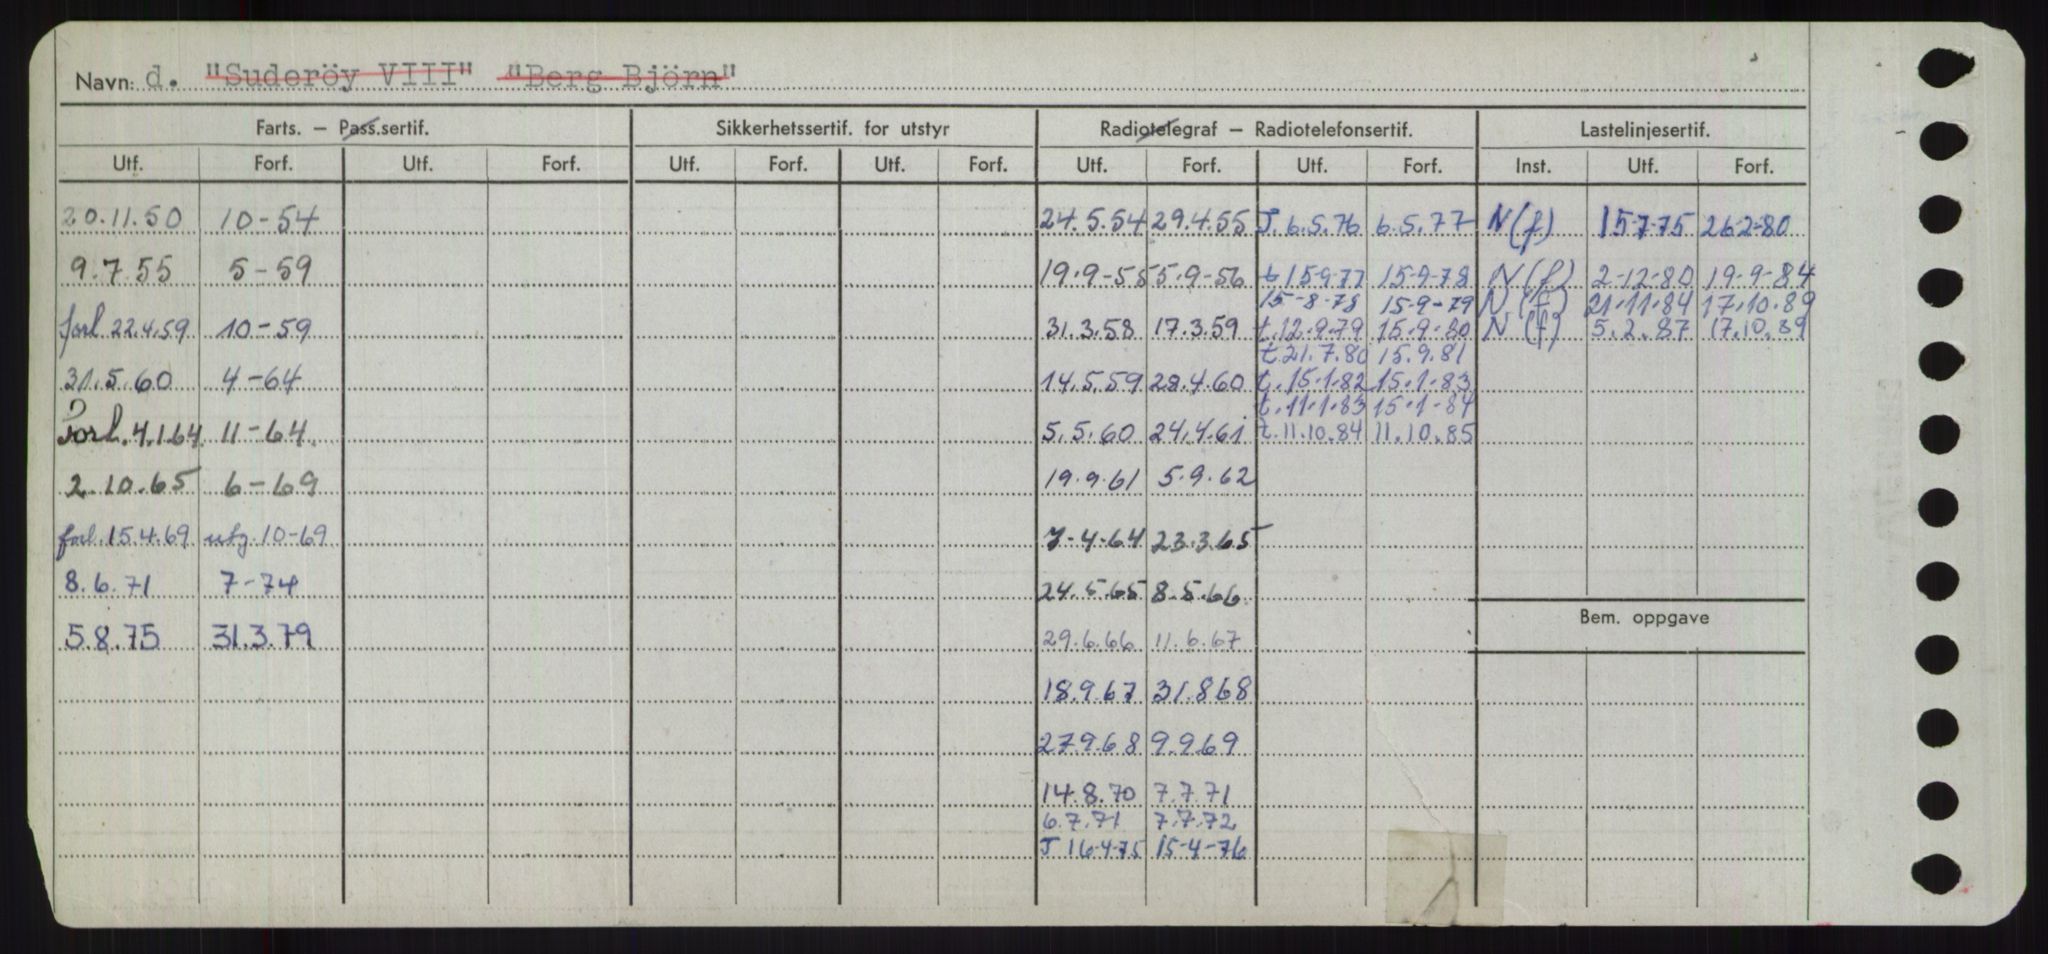 Navn: d. "Suderöy VIII" "Berg Björn"
Farts. – Pass.sertif. Sikkerhetssertif. for utstyr Radiotelegraf – Radiotelefonsertif. Lastelinjesertif.
Utf. Forf. Utf. Forf. Utf. Forf. Utf. Forf. Utf. Forf. Utf. Forf. Inst. Utf. Forf.
20.11.50 10-54 24.5.54 29.4.55 T. 6.5.76 6.5.77 N(f) 15-7-75 26-2-80
9.7.55 5-59 19.9-55 5.9-56 t 15-9-77 15-9-78 N(f) 2-12-80 19-9-84
15-8-78 15-9-79 N(f) 21.11.84 17.10.89
forl. 22.4.59 10-59 31.3.58 17.3.59 t.12.9.79 15.9.80 N(f) 5.2.87 17.10.89
t.21.7.80 15.9.81
31.5.60 4-64 14.5.59 28.4.60 t.15.1.82 15.1.83
t.11.1.83 15.1-84
Forl. 4.1.64 11-64 5.5.60 24.4.61 t.11.10.84 11.10.85
2.10.65 6-69 19.9.61 5.9.62
forl. 15.4.69 utg. 10-69 7-4-64 23.3.65
8.6.71 7-74 24.5.65 8.5.66
Bem. oppgave
5.8.75 31.3.79 29.6.66 11.6.67
18.9.67 31.8.68
27.9.68 9.9.69
14.8.70 7.7.71
6.7.71 7.7.72
T 16-4-75 15-4-76